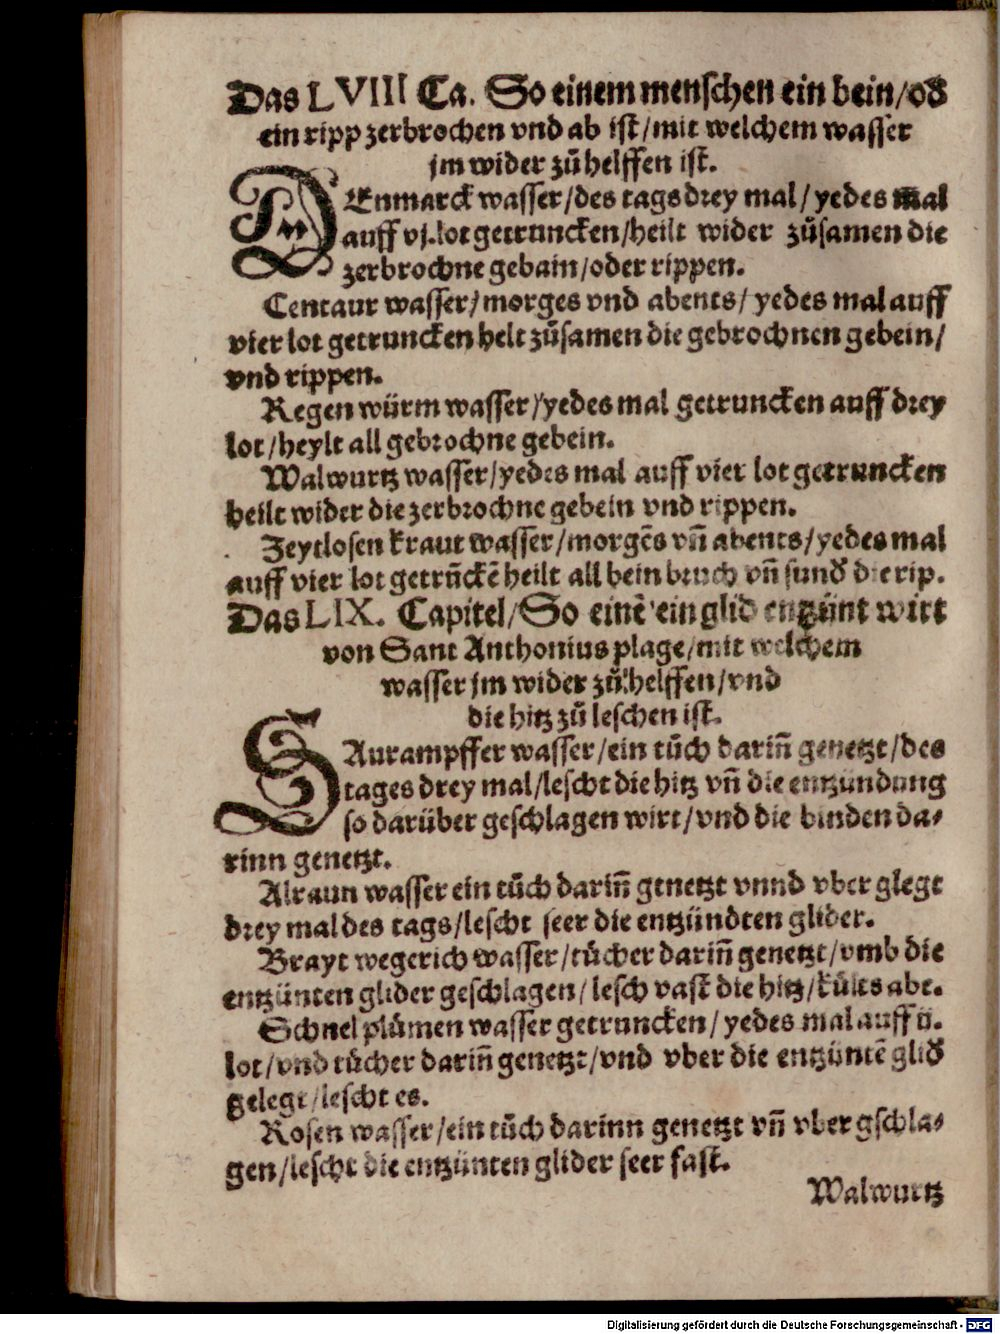 Das LVIII Ca. So einem menschen ein bein/od
ein ripp zerbrochen vnd ab ist/mit welchem wasser
jm wider zů helffen ist.
DEnmarck wasser/des tags drey mal/ yedes mal
auff vj. lot getruncken/heilt wider zůsamen die
zerbrochne gebain/oder rippen.
Centaur wasser/morges vnd abents/ yedes mal auff
vier lot getruncken helt zůsamen die gebrochnen gebein/
vnd rippen.
Regen würm wasser/yedes mal getruncken auff drey
lot/heylt all gebrochne gebein.
Walwurtz wasser/yedes mal auff vier lot getruncken
heilt wider die zerbrochne gebein vnd rippen.
Zeytlosen kraut wasser/morgēs vñ abents/yedes mal
auff vier lot getrūckē heilt all bein bruch vñ sund die rip.
Das LIX. Capitel/So einē ein glid entzünt wirt
von Sant Anthonius plage/mit welchem
wasser jm wider zů helffen/vnd
die hitz zů leschen ist.
SAurampffer wasser/ein tůch dariñ genetzt/des
tages drey mal/lescht die hitz vñ die entzündung
so darüber geschlagen wirt/vnd die binden da-
rinn genetzt.
Alraun wasser ein tůch dariñ genetzt vnnd vber glegt
drey mal des tags/lescht seer die entzündten glider.
Brayt wegerich wasser/tücher dariñ genetzt/vmb die
entzünten glider geschlagen/lesch vast die hitz/külts abt.
Schnel plůmen wasser getruncken/ yedes mal auff ij.
lot/vnd tücher dariñ genetzt/vnd vber die entzüntē glid
gelegt/lescht es.
Rosen wasser/ein tůch darinn genetzt vñ vber gschla-
gen/lescht die entzünten glider seer fast.
Walwurtz
Digitalisierung gefördert durch die Deutsche Forschungsgemeinschaft - DFG